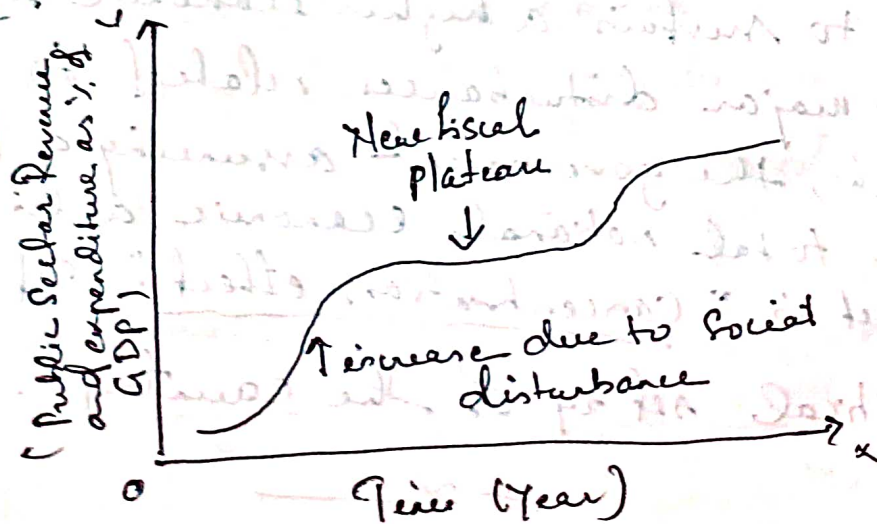 (Public Sector Revenue
and expenditure as % of
GDP)
New fiscal
plateau
increase due to Social
disturbance
0
x
Time (Year)